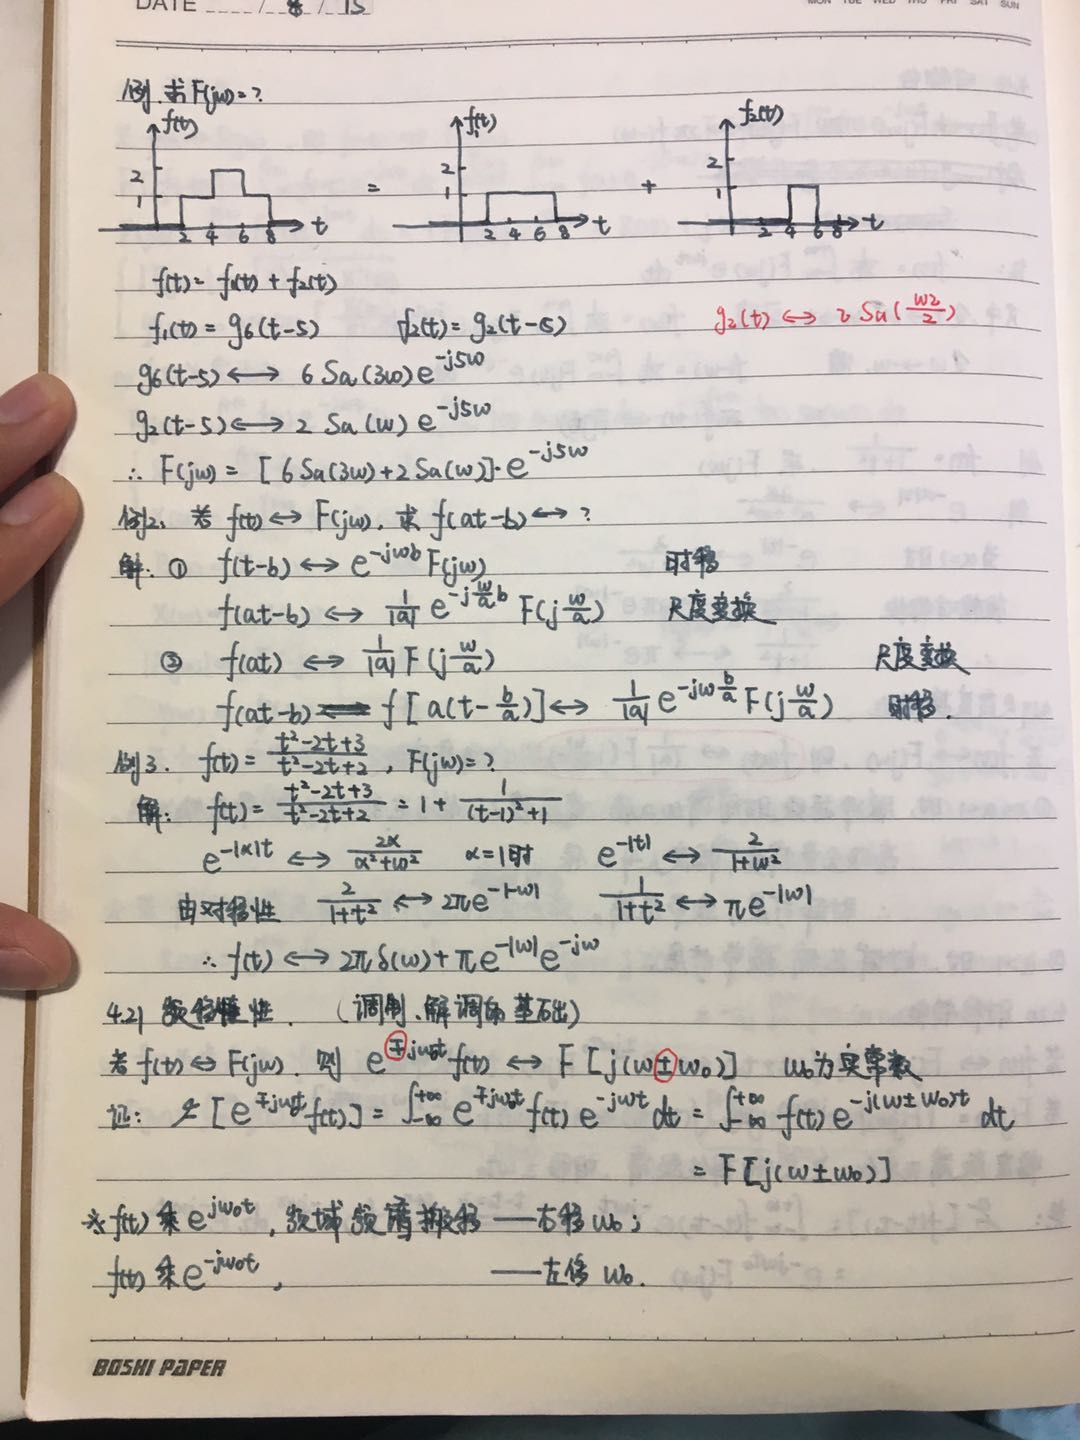 DATE / 8 / 15
MON TUE WED THU FRI SAT SUN
例. 求F(jω)=?
f(t) 2 1 2 4 6 8 t = f₁(t) 2 1 2 4 6 8 t + f₂(t) 2 1 2 4 6 8 t
f(t)= f₁(t) + f₂(t)
f₁(t) = g₆(t-5) f₂(t) = g₂(t-5) g₂(t) ⟷ 2 Sa(ω2/2)
g₆(t-5) ⟷ 6 Sa(3ω) e^{-j5ω}
g₂(t-5) ⟷ 2 Sa(ω) e^{-j5ω}
∴ F(jω) = [6 Sa(3ω)+2 Sa(ω)]·e^{-j5ω}
例2. 若 f(t) ⟷ F(jω), 求 f(at-b) ⟷ ?
解: ① f(t-b) ⟷ e^{-jωb} F(jω) 时移
f(at-b) ⟷ 1/|a| e^{-j(ω/a)b} F(j ω/a) 尺度变换
② f(at) ⟷ 1/|a| F(j ω/a) 尺度变换
f(at-b) = f[a(t-b/a)] ⟷ 1/|a| e^{-jω b/a} F(j ω/a) 时移.
例3. f(t) = (t²-2t+3)/(t²-2t+2), F(jω)=?
解: f(t) = (t²-2t+3)/(t²-2t+2) = 1 + 1/((t-1)²+1)
e^{-|α|t} ⟷ 2α/(α²+ω²) α=1时 e^{-|t|} ⟷ 2/(1+ω²)
由对称性 2/(1+t²) ⟷ 2πe^{-|-ω|} 1/(1+t²) ⟷ πe^{-|ω|}
∴ f(t) ⟷ 2πδ(ω)+πe^{-|ω|}e^{-jω}
4.21 频移特性. (调制、解调的基础)
若 f(t) ⟷ F(jω). 则 e^{∓jω₀t} f(t) ⟷ F[j(ω±ω₀)] ω₀为实常数
证: ℱ[e^{∓jω₀t}f(t)] = ∫_{-∞}^{+∞} e^{∓jω₀t} f(t) e^{-jωt} dt = ∫_{-∞}^{+∞} f(t) e^{-j(ω±ω₀)t} dt
= F[j(ω±ω₀)]
※ f(t) 乘 e^{jω₀t}, 频域频谱搬移 —— 右移 ω₀;
f(t) 乘 e^{-jω₀t}, —— 左移 ω₀.
BOSHI PAPER